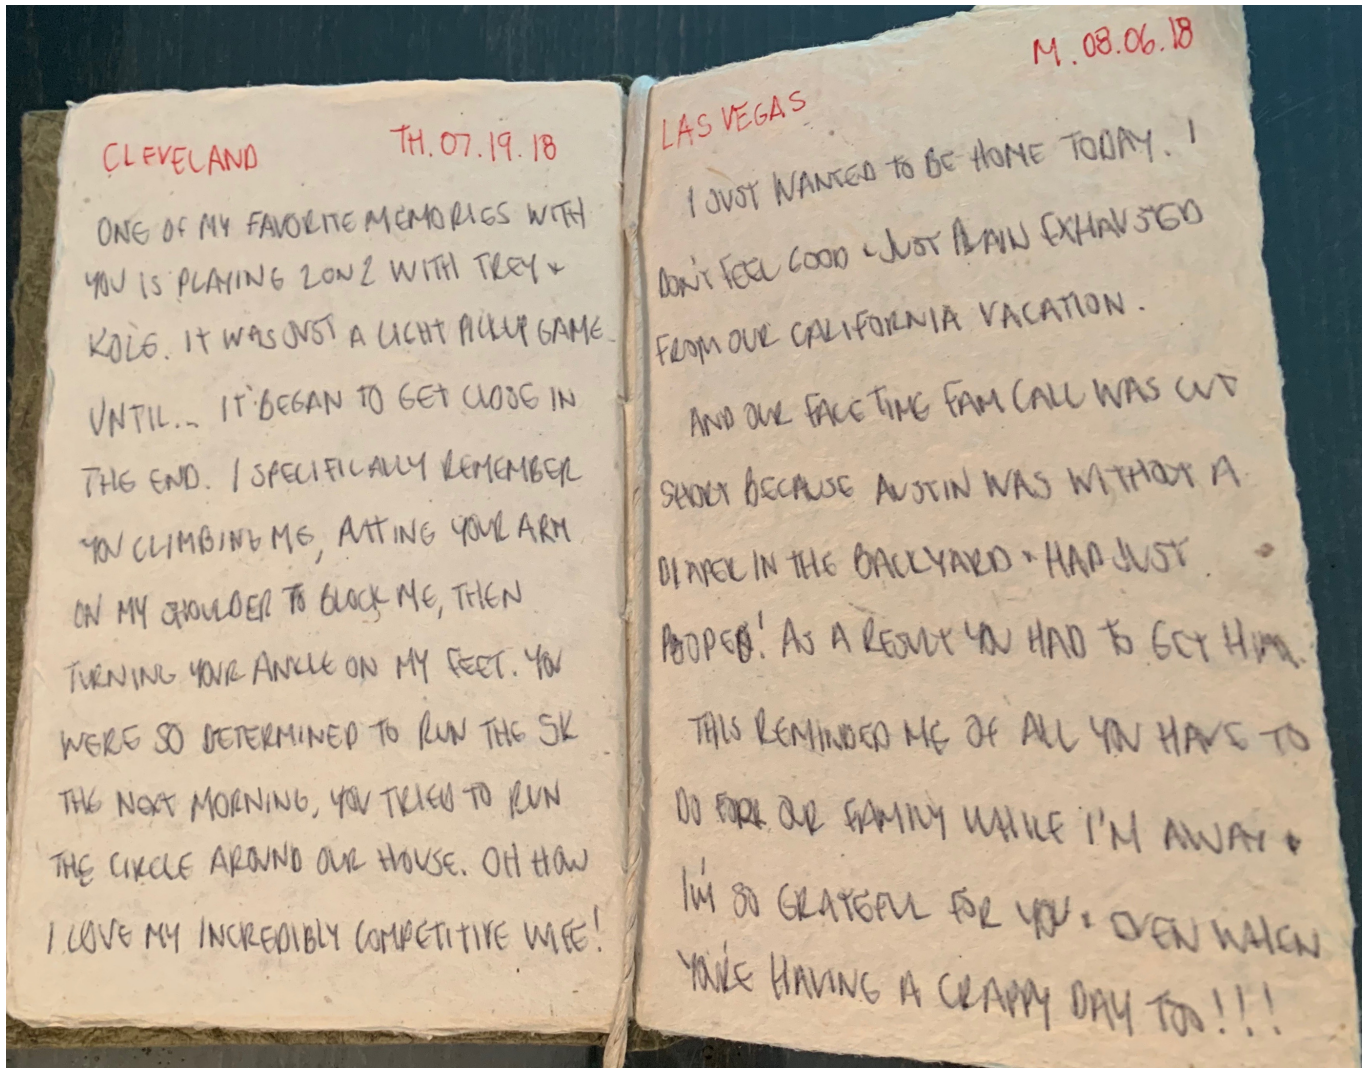 CLEVELAND TH. 07.19.18
ONE OF MY FAVORITE MEMORIES WITH
YOU IS PLAYING 2 ON 2 WITH TREY +
KOLE. IT WAS JUST A LIGHT PICKUP GAME
UNTIL... IT BEGAN TO GET CLOSE IN
THE END. I SPECIFICALLY REMEMBER
YOU CLIMBING ME, PUTTING YOUR ARM
ON MY SHOULDER TO BLOCK ME, THEN
TURNING YOUR ANKLE ON MY FEET. YOU
WERE SO DETERMINED TO RUN THE 5K
THE NEXT MORNING, YOU TRIED TO RUN
THE CIRCLE AROUND OUR HOUSE. OH HOW
I LOVE MY INCREDIBLY COMPETITIVE WIFE!
LAS VEGAS M. 08.06.18
I JUST WANTED TO BE HOME TODAY. I
DON'T FEEL GOOD + JUST PLAIN EXHAUSTED
FROM OUR CALIFORNIA VACATION.
AND OUR FACE TIME FAM CALL WAS CUT
SHORT BECAUSE AUSTIN WAS WITHOUT A
DIAPER IN THE BACKYARD + HAD JUST
POOPED! AS A RESULT YOU HAD TO GET HIM.
THIS REMINDED ME OF ALL YOU HAVE TO
DO FOR OUR FAMILY WHILE I'M AWAY +
I'M SO GRATEFUL FOR YOU + EVEN WHEN
YOU'RE HAVING A CRAPPY DAY TOO!!!